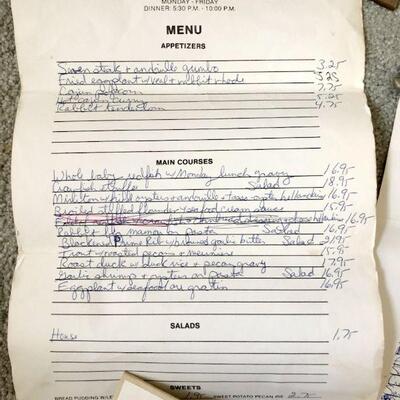 MONDAY - FRIDAY
DINNER: 5:30 P.M. - 10:00 P.M.
MENU
APPETIZERS
steak + andouille gumbo 3.25
Fried eggplant w/ veal + rabbit 5.25
Cajun popcorn 7.75
5.25
Rabbit tenderloin 4.75
MAIN COURSES
Whole baby redfish w/ Monday lunch gravy 16.95
Crawfish Salad 18.95
Mirliton w/ fried oysters + andouille + tasso oyster hollandaise 16.95
Broiled stuffed flounder w/ seafood cream sauce
16.95
Rabbit mamou on pasta Salad 16.95
Blackened Prime Rib w/ browned garlic butter Salad 21.95
Trout w/ roasted pecans + meuniere 15.95
Roast duck w/ duck rice + pecan gravy 17.95
Garlic shrimp + oysters on pasta Salad 16.95
Eggplant w/ seafood au gratin 16.95
SALADS
House 1.75
SWEETS
BREAD PUDDING W/LE 1.95 SWEET POTATO PECAN PIE 2.75